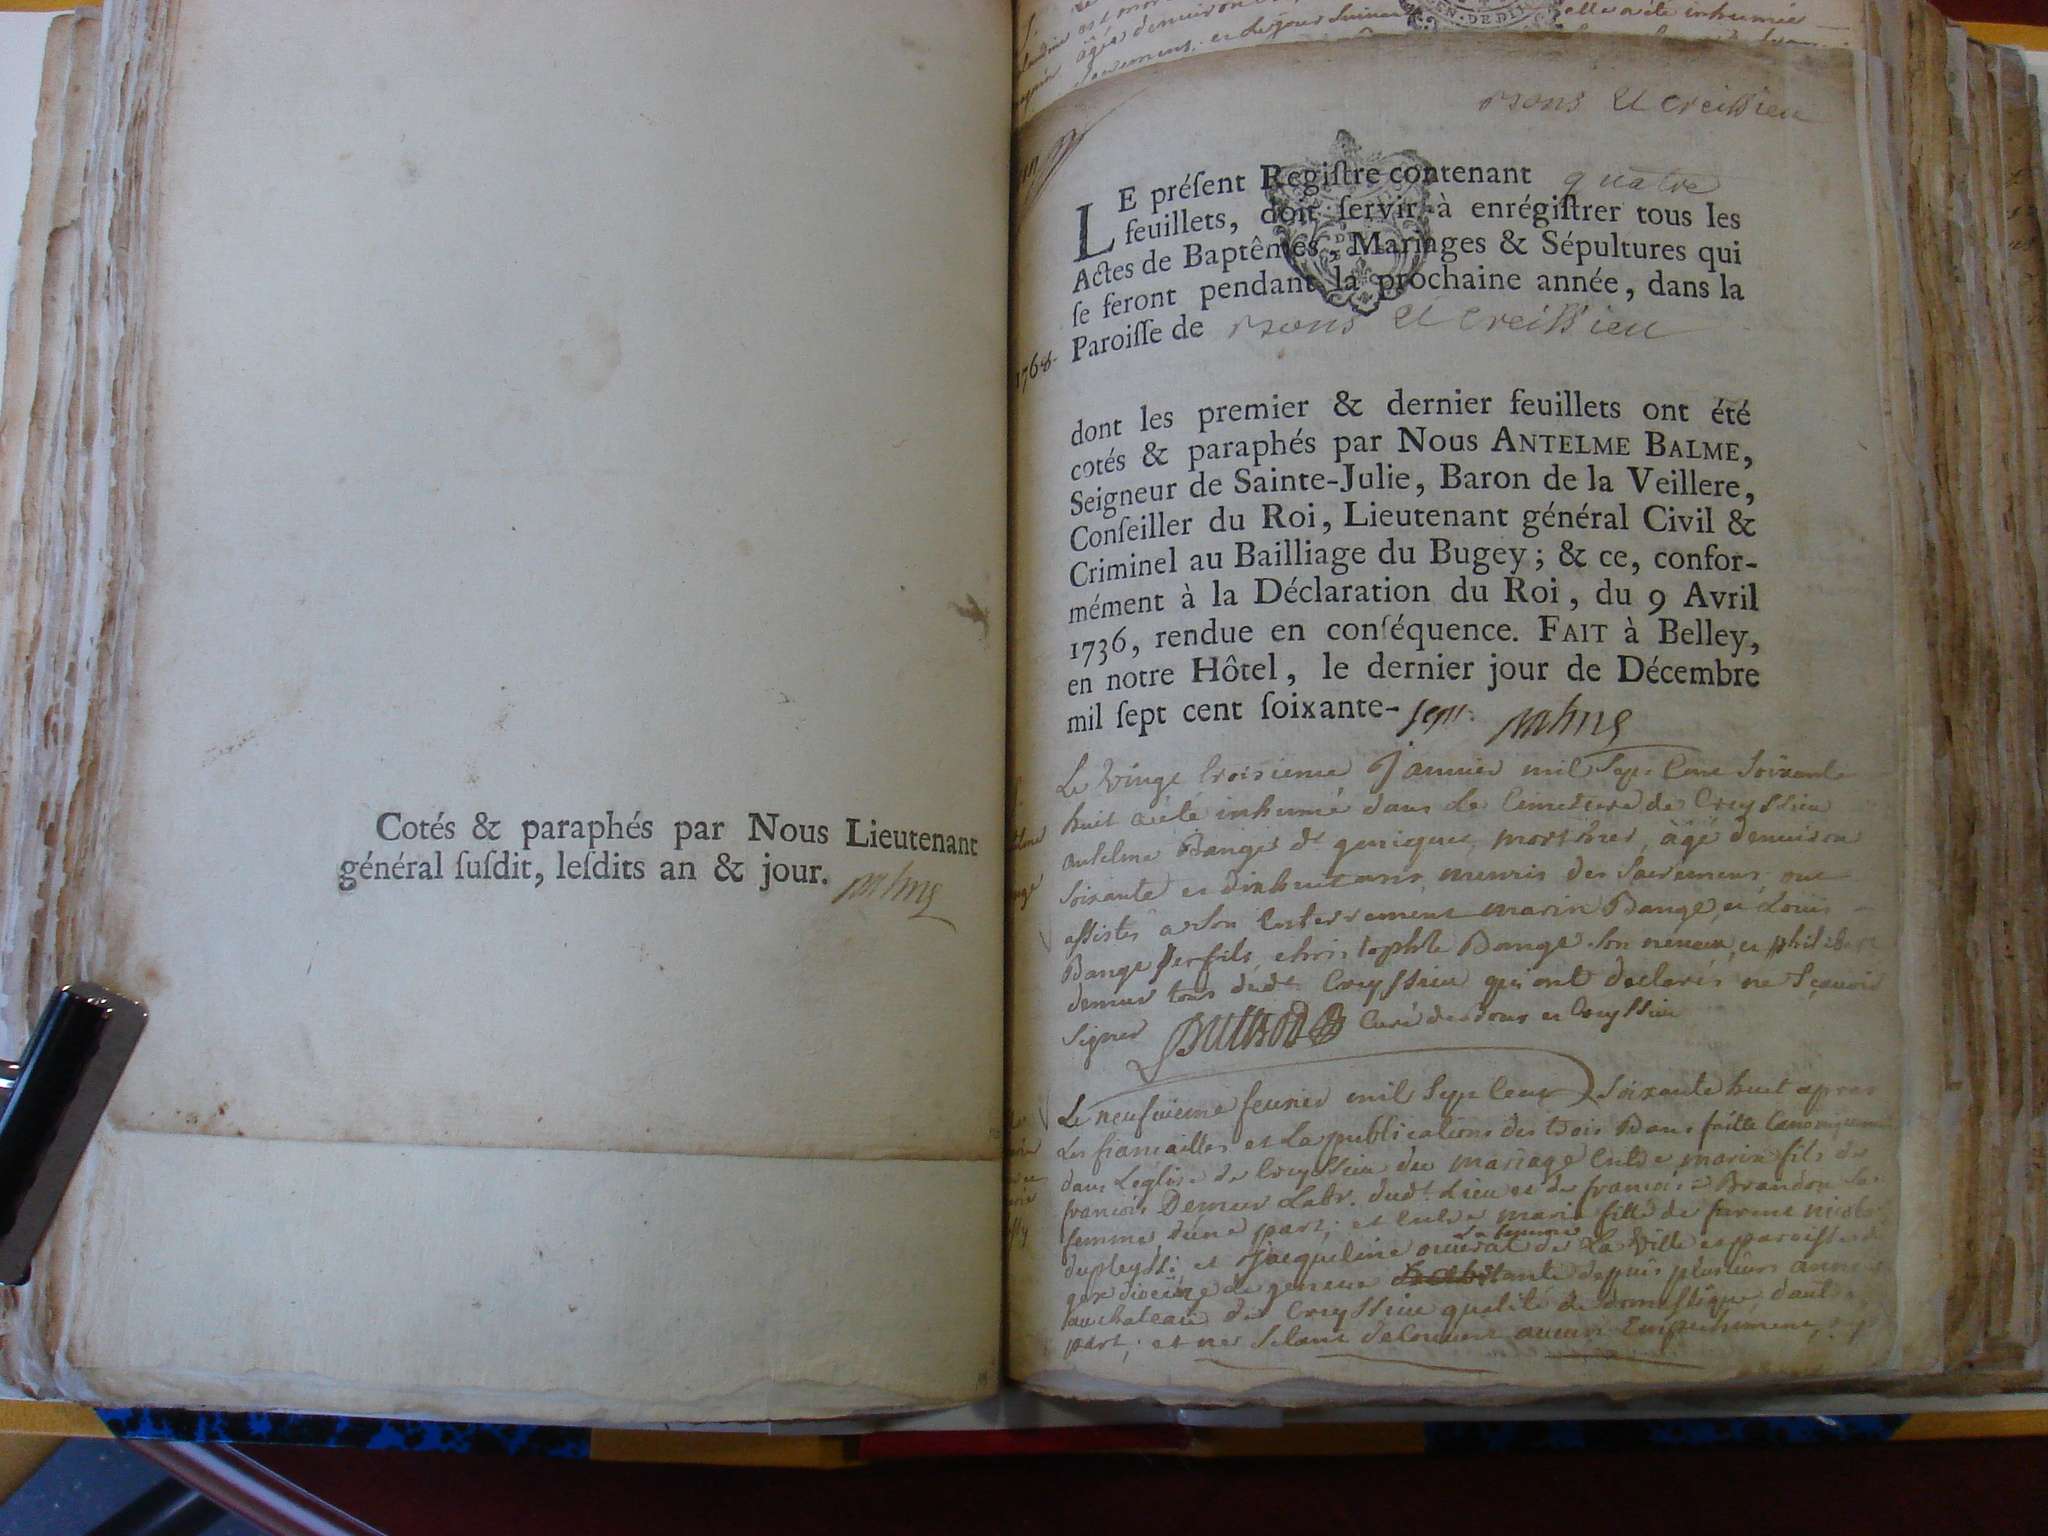 Cotés & paraphés par Nous Lieutenant
général ſuſdit, leſdits an & jour.
elle a été inhumée
et Creissieu
LE préſent Regiſtre contenant quatre
feuillets, doit ſervir à enrégiſtrer tous les
Actes de Baptêmes, Mariages & Sépultures qui
ſe feront pendant la prochaine année, dans la
Paroiſſe de et Creissieu
1768
dont les premier & dernier feuillets ont été
cotés & paraphés par Nous ANTELME BALME,
Seigneur de Sainte-Julie, Baron de la Veillere,
Conſeiller du Roi, Lieutenant général Civil &
Criminel au Bailliage du Bugey; & ce, confor-
mément à la Déclaration du Roi, du 9 Avril
1736, rendue en conſéquence. FAIT à Belley,
en notre Hôtel, le dernier jour de Décembre
mil ſept cent ſoixante-sept.
Le vingt troisieme Janvier mil sept cent soixante
huit a été inhumé dans le Cimetiere de Creyssieu
antelme Bange de mort hier, âgé d'environ
soixante et dix huit ans, munis des sacremens, ont
assistés a son enterrement marin Bange, et Louis
Bange ses fils, christophle Bange son neveu, et philibert
demur tous dudt Creyssieu qui ont declarés ne sçavoir
signer Curé et Creyssieu
Le neufvieme fevrier mil sept cent soixante huit apres
Les fiancailles et La publications des trois Bans faitte
dans L'eglise de Creyssieu du mariage entre marin fils de
francois Demur Labr. dudt. Lieu et de francoise Brandon sa
femme d'une part; et entre marie fille de
et Jacqueline sa femme de La Ville et paroisse de
gex diocèze de geneve depuis plusieurs années
au chateau de Creyssieu qualité de domestique d'autre
part; et ne s'etant decouvert aucun Empechement,